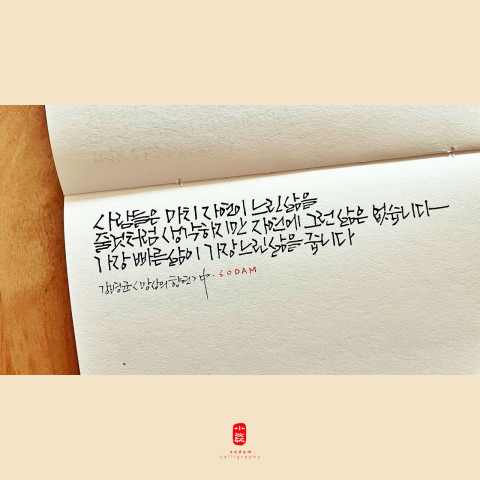 사람들은 마치 자연이 느린 삶을
줄것처럼 생각하지만 자연에 그런 삶은 없습니다
가장 빠른 삶이 가장 느린 삶을 줍니다
김영균 <망상의 향연> 中. SODAM
sodam
calligraphy